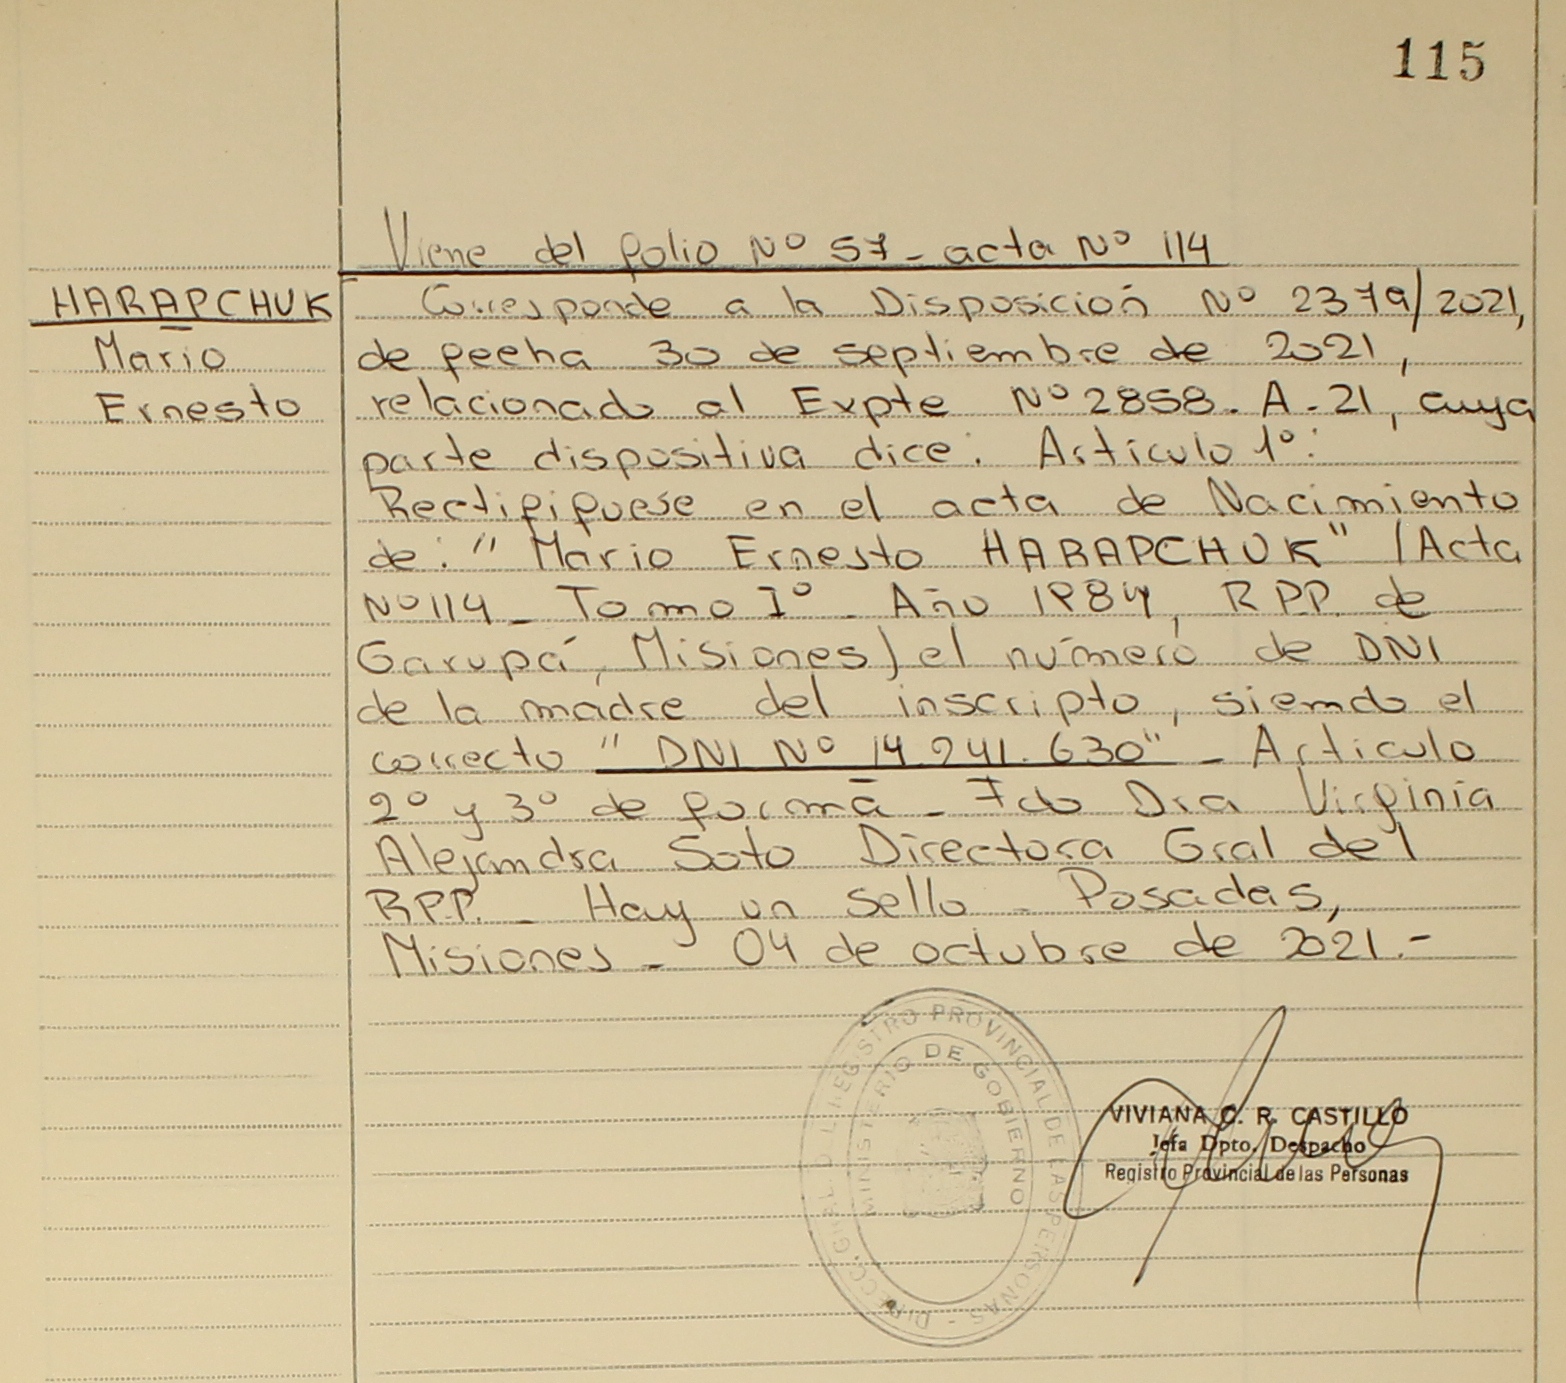 115
Viene del folio Nº 57 - acta Nº 114
HARAPCHUK
Mario
Ernesto
Corresponde a la Disposición Nº 2379/2021,
de fecha 30 de septiembre de 2021,
relacionado al Expte Nº 2858. A - 21, cuya
parte dispositiva dice: Artículo 1º:
Rectifíquese en el acta de Nacimiento
de: "Mario Ernesto HARAPCHUK" (Acta
Nº 114 - Tomo Iº - Año 1984, RPP. de
Garupá, Misiones) el número de DNI
de la madre del inscripto, siendo el
correcto "DNI Nº 14.241.630" - Artículo
2º y 3º de forma - Fdo Dra Virginia
Alejandra Soto Directora Gral del
RPP. - Hay un sello - Posadas,
Misiones - 04 de octubre de 2021.-
DIRECC. GRAL. DEL REGISTRO PROVINCIAL DE LAS PERSONAS -
MINISTERIO DE GOBIERNO
VIVIANA C. R. CASTILLO
Jefa Dpto. Despacho
Registro Provincial de las Personas